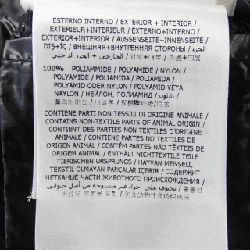 ESTERNO INTERNO / EXTERIOR + INTERIOR /
EXTERIEUR+INTERIEUR / EXTERNO+INTERNO /
EXTERIOR+INTERIOR / AUSSENSEITE+INNENSEITE /
ВНЕШНАЯ+ВНУТРЕННАЯ СТОРОНЫ /
100% POLIAMMIDE / POLYAMIDE / NYLON /
POLYAMIDE / POLIAMIDA / POLIAMIDA /
POLYAMID ODER NYLON / POLYAMID VEYA
NAYLON / НЕЙЛОН, ПОЛИАМИД /
CONTIENE PARTI NON TESSILI DI ORIGINE ANIMALE /
CONTAINS NON-TEXTILE PARTS OF ANIMAL ORIGIN /
CONTIENT DES PARTIES NON TEXTILES D'ORIGINE
ANIMALE / CONTIENE PARTES NO TEXTILES DE
ORIGEN ANIMAL / CONTÉM PARTES NÃO TÊXTEIS DE
ORIGEM ANIMAL / ENTHÄLT NICHTTEXTILE TEILE
TIERISCHEN URSPRUNGS / HAYVAN MENSEILI,
TEKSTIL OLMAYAN PARÇALAR İÇERİR / СОДЕРЖИТ
НЕТКАНЫЕ ЧАСТИ ЖИВОТНОГО ПРОИСХОЖДЕНИЯ /